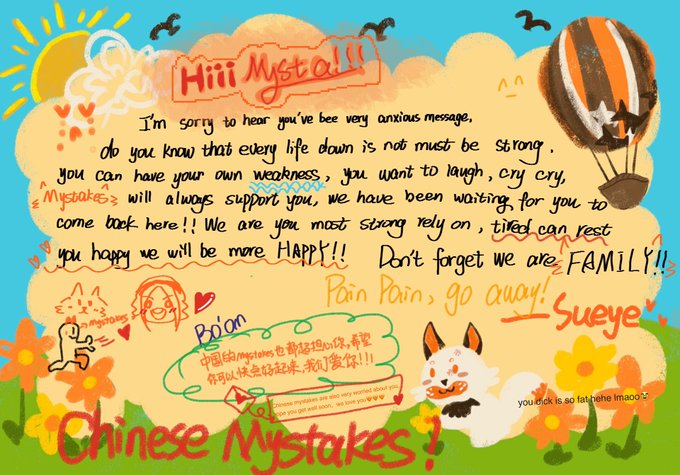 Hiii Mysta!!!
I'm sorry to hear you've bee very anxious message,
do you know that every life down is not must be strong.
you can have your own weakness, you want to laugh, cry cry,
Mystakes will always support you, we have been waiting for you to
come back here!! We are you most strong rely on, tired can rest
you happy we will be more HAPPY!! Don't forget we are FAMILY!!
Pain Pain, go away!
Sueye
mystakes
Bo'an
中国的mystakes也都超担心你,希望
你可以快点好起来,我们爱你!!!
Chinese mystakes are also very worried about you,
hope you get well soon, we love you
you dick is so fat hehe lmaoo
Chinese Mystakes!